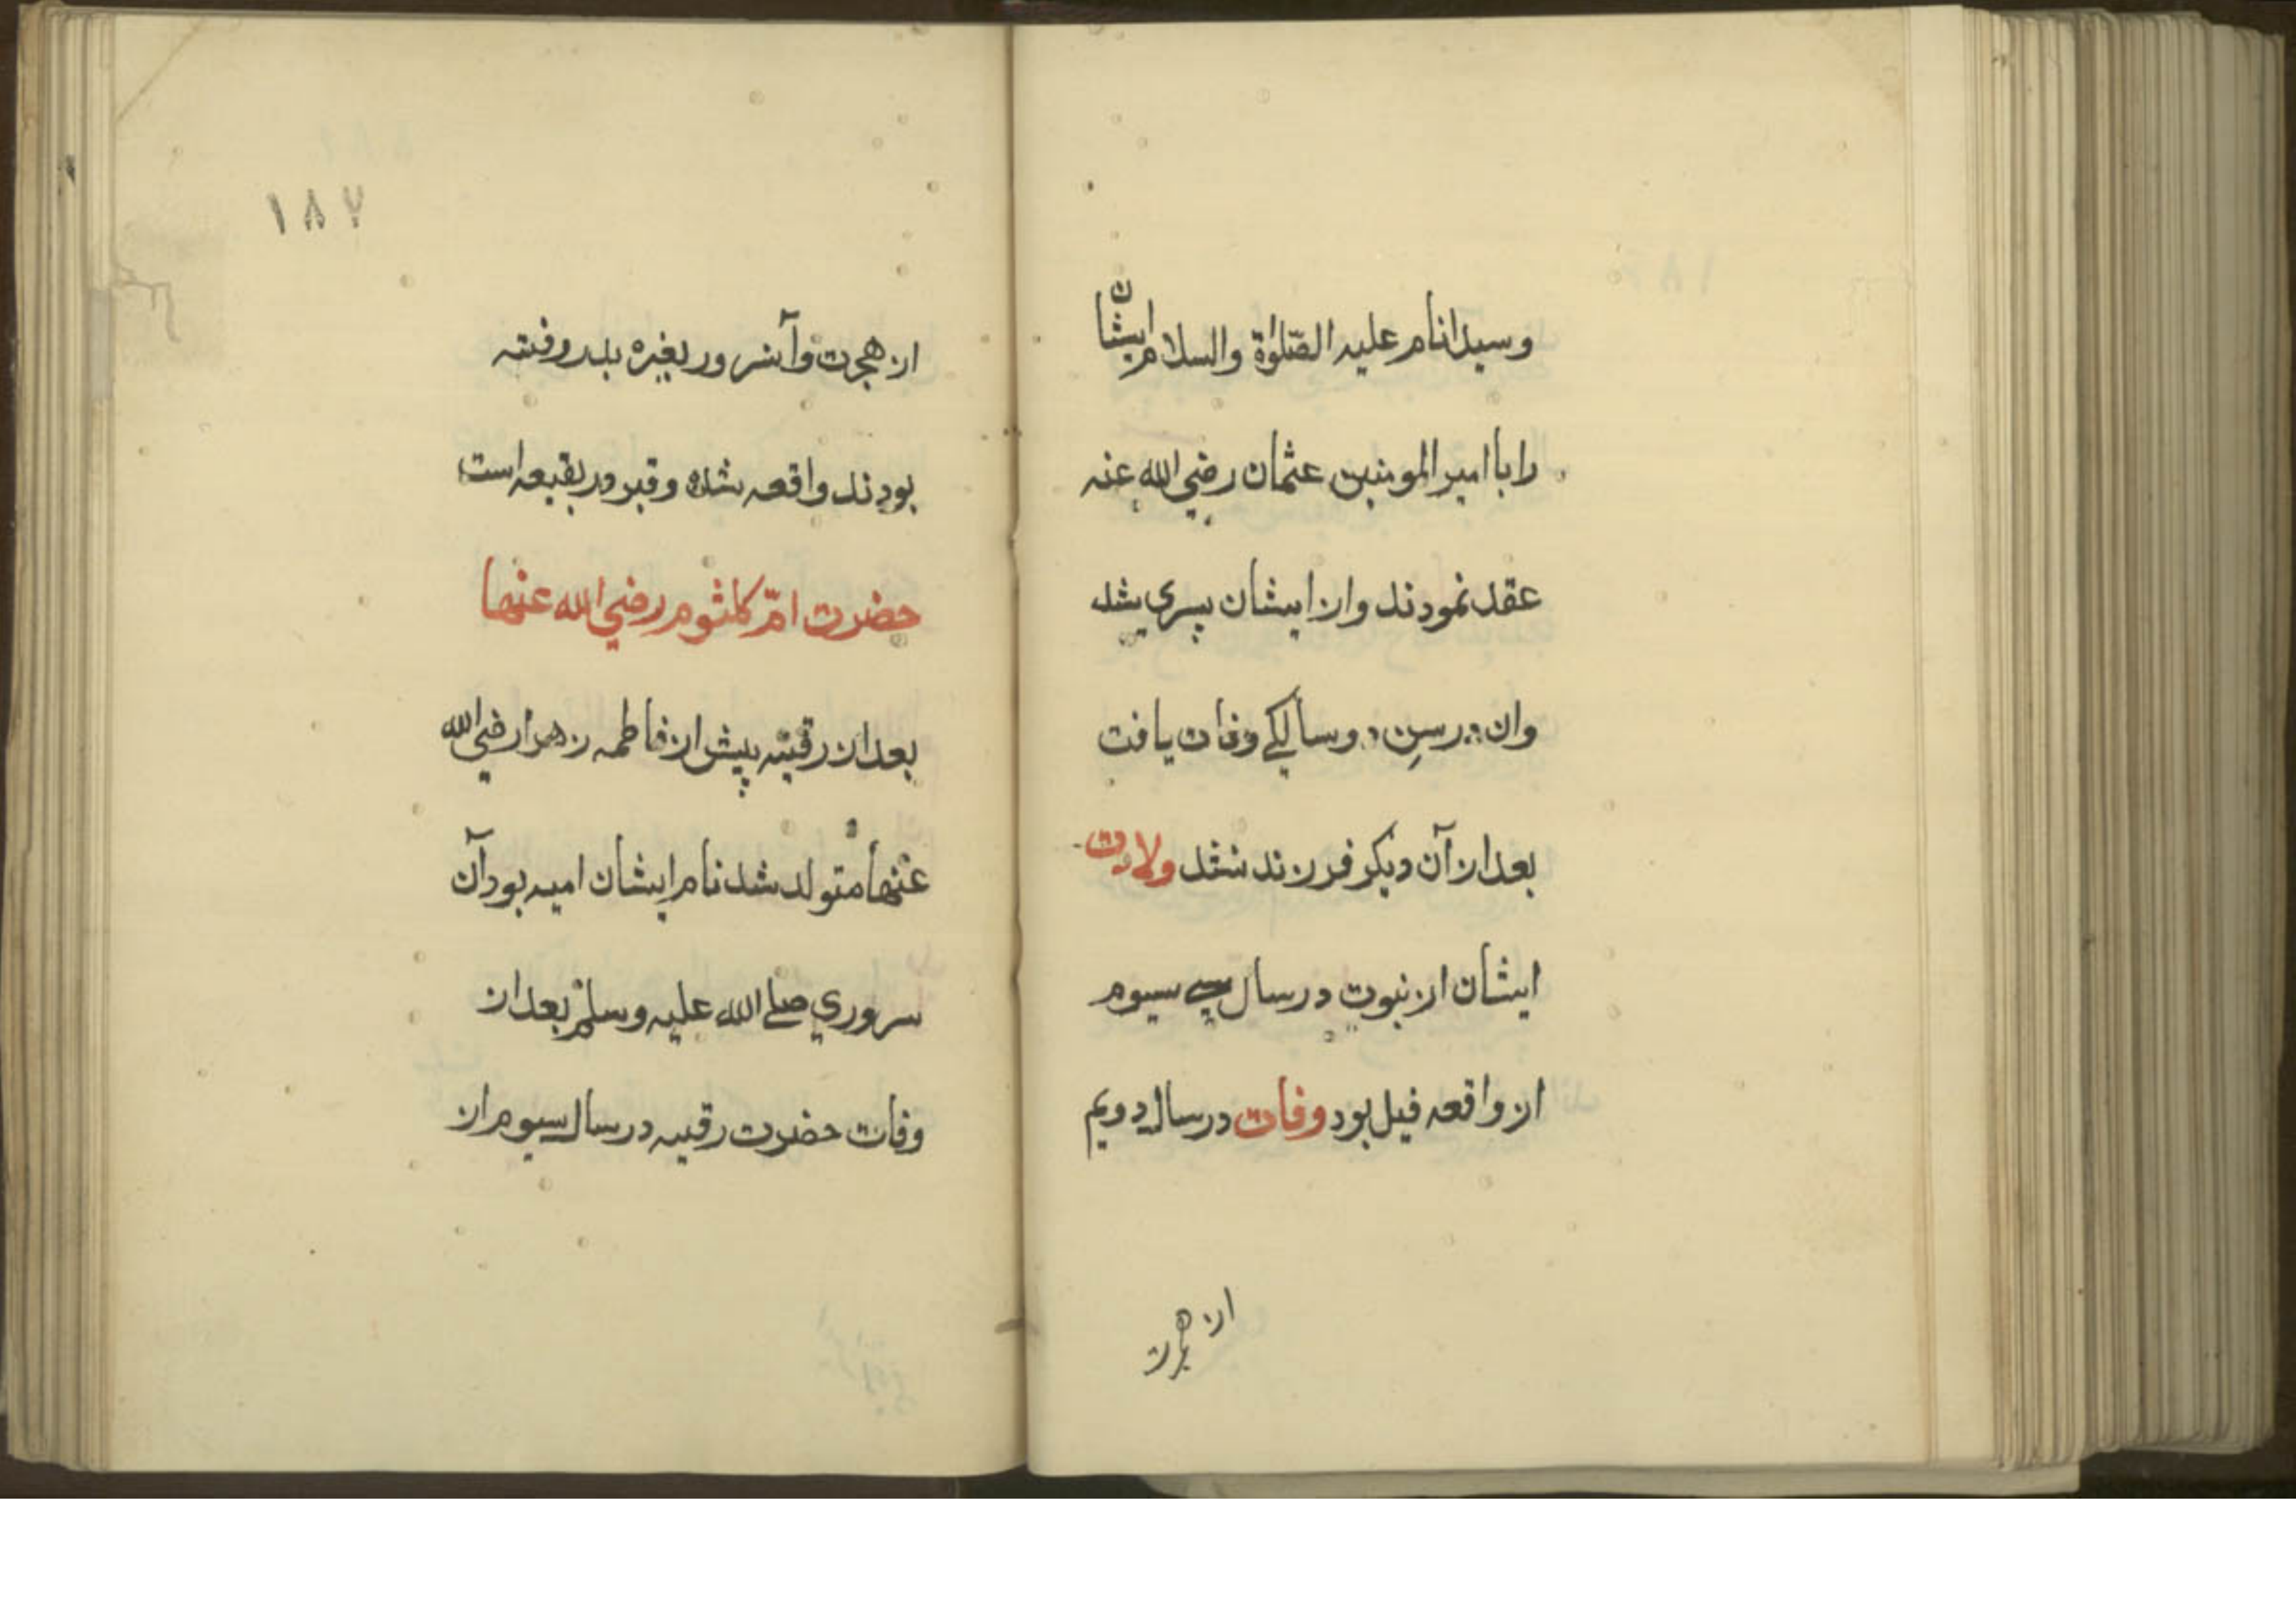 وسید انام علیه الصّلوٰة والسلام ایشان
را با امیر المومنین عثمان رضی الله عنه
عقد نمودند و از ایشان پسری شد
وان در سنِ دو سالگے وفات یافت
بعد از آن دیگر فرزند نشد ولادت
ایشان از نبوت در سال سیوم
از واقعه فیل بود وفات در سال دویم
از هجرت
١٨٧
از هجرت وآنسرور بغزه بدر رفته
بودند واقعه شده و قبر در بقیعه است
حضرت امّ کلثوم رضی الله عنها
بعد از رقیّه پیش از فاطمه زهرا رضی الله
عنها متولد شد نام ایشان امیه بود آن
سروری صلے الله علیه وسلم بعد از
وفات حضرت رقیه در سال سیوم از